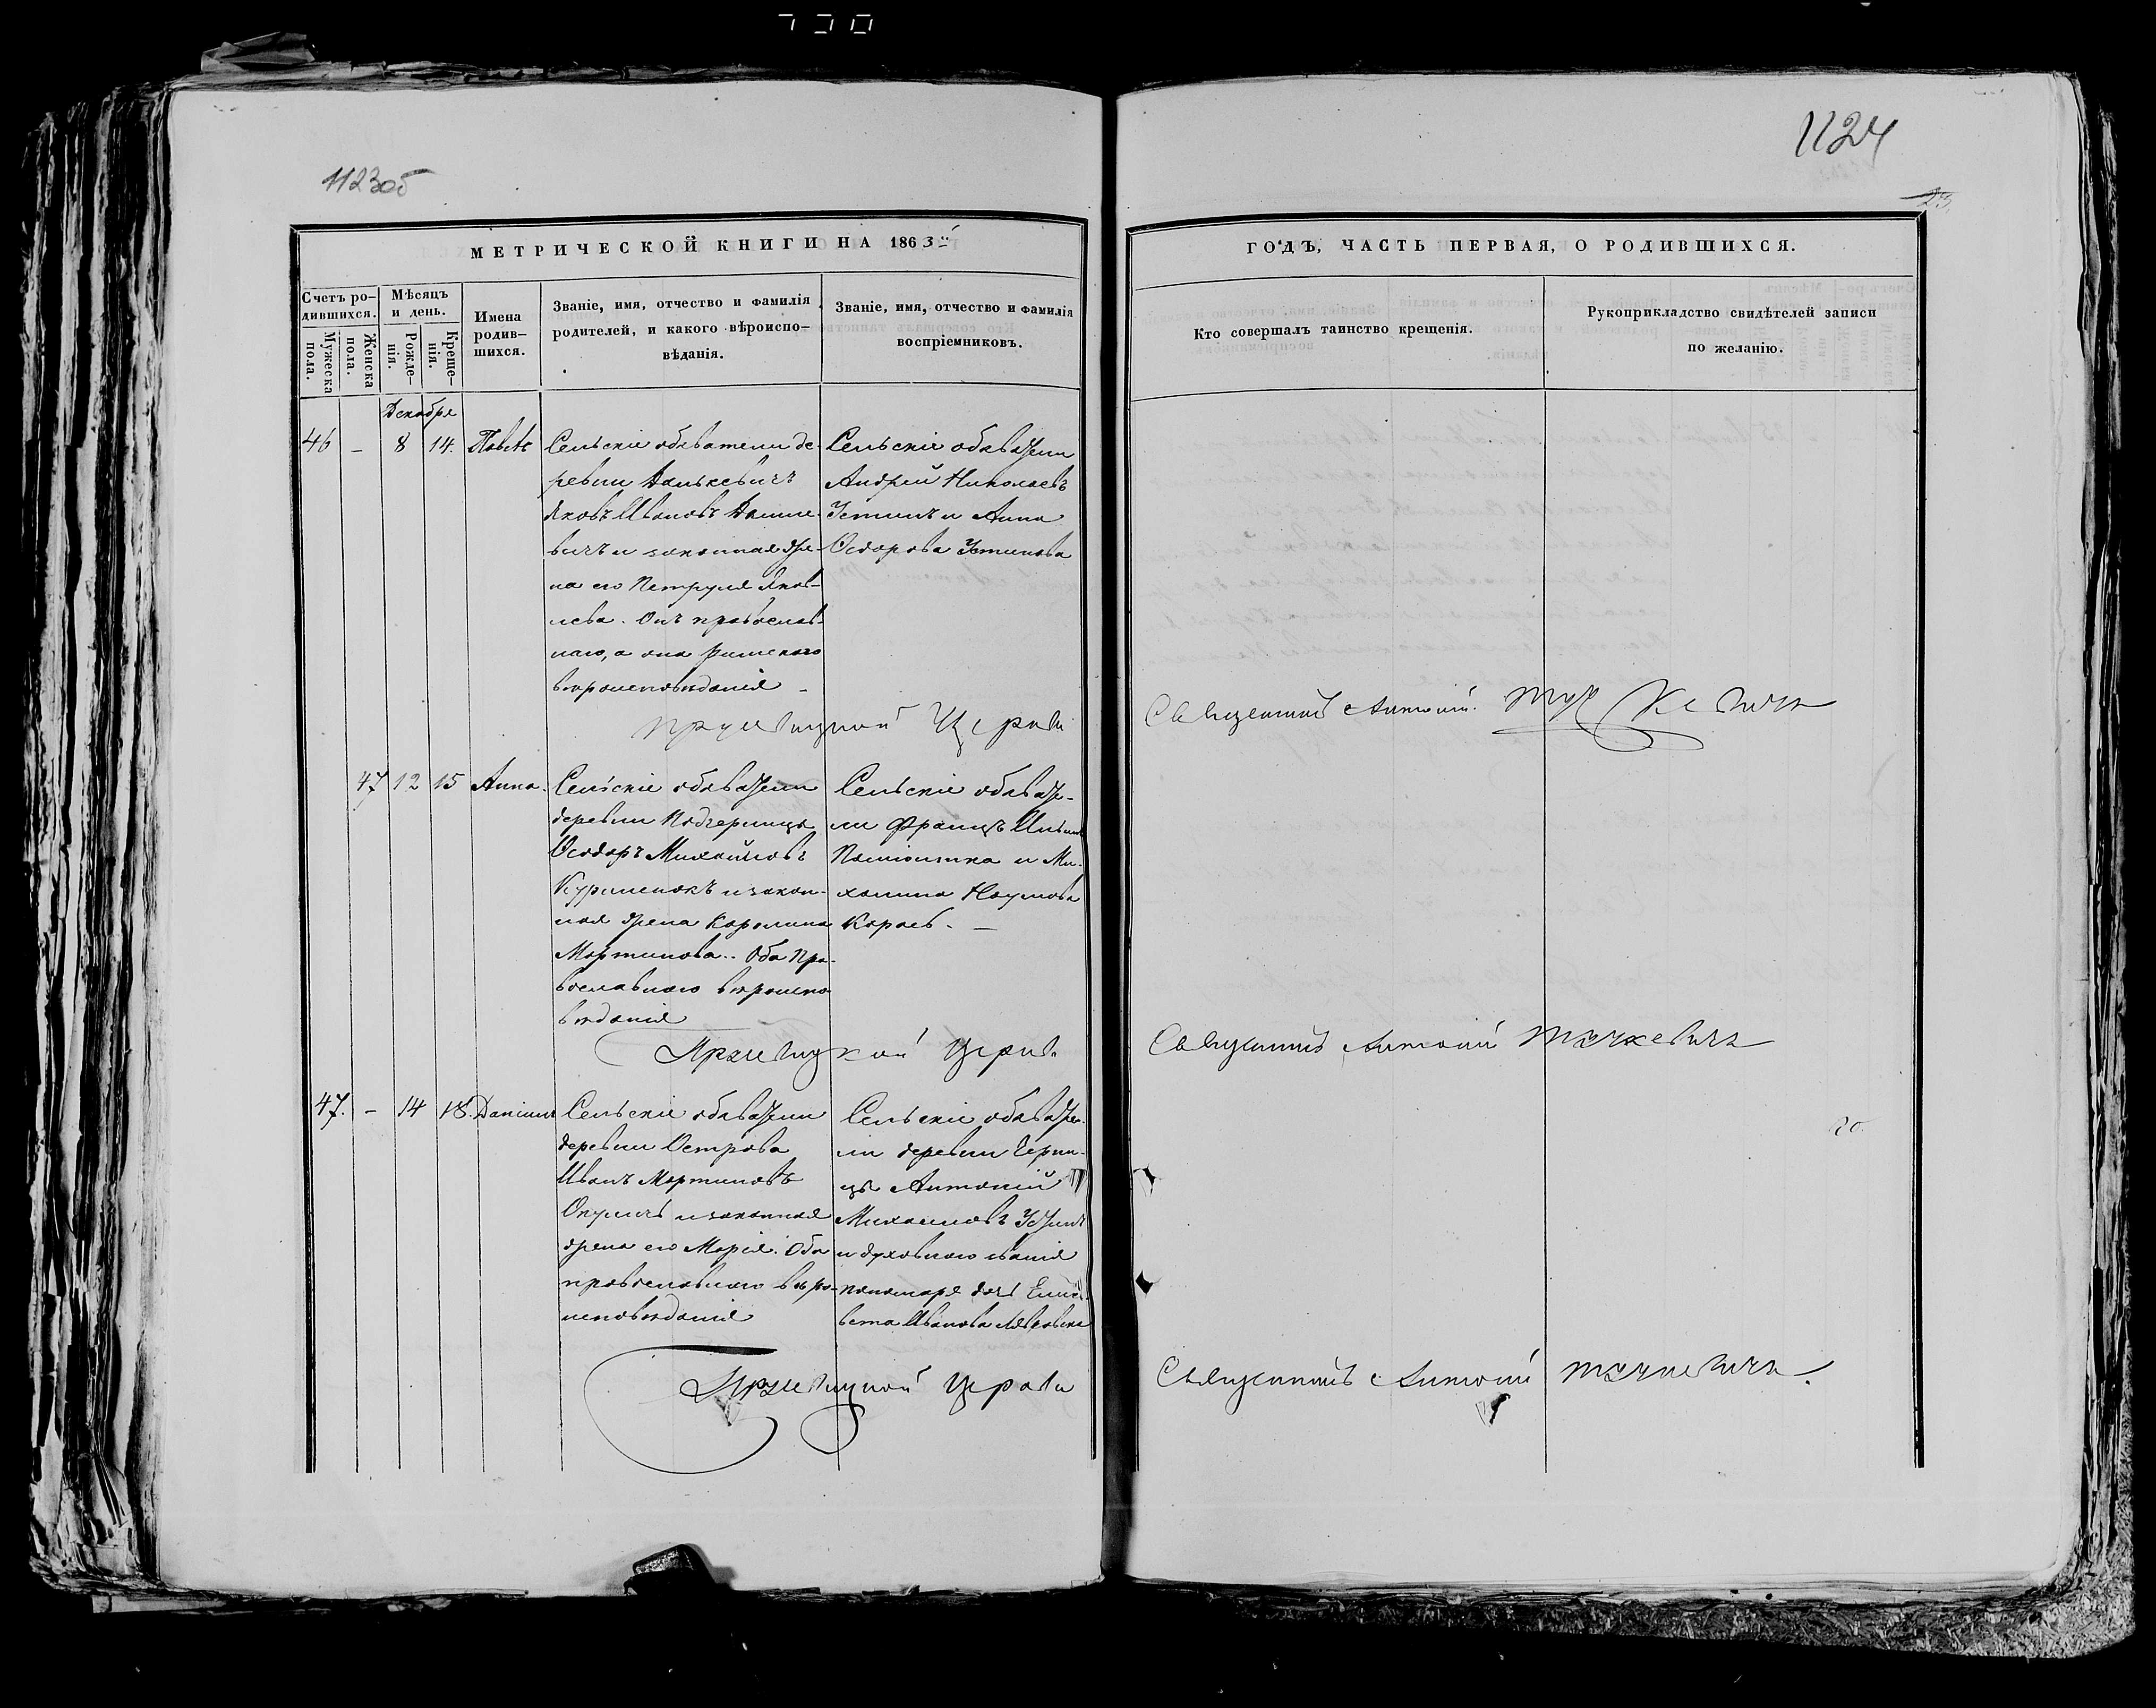 1123об
1124
23
МЕТРИЧЕСКОЙ КНИГИ НА 1863й
ГОДЪ, ЧАСТЬ ПЕРВАЯ, О РОДИВШИХСЯ.
Счетъ ро-
дившихся.
Мужеска
пола.
Женска
пола.
Мѣсяцъ
и день.
Рожде-
нія.
Креще-
нія.
Имена
родив-
шихся.
Званіе, имя, отчество и фамилія
родителей, и какого вѣроиспо-
вѣданія.
Званіе, имя, отчество и фамилія
воспріемниковъ.
Кто совершалъ таинство крещенія.
Рукоприкладство свидѣтелей записи
по желанію.
Декабря
46 - 8 14. Павелъ
Сельскіе обыватели де-
ревни
Яковъ Ивановъ
вичъ и законная же-
на его Петруля Яков-
лева. Онъ православ-
наго, а она римскаго
вѣроисповѣданія -
Сельскіе обыватели
Андрей Николаевъ
Устинъ и Анна
Ѳедорова Устинова
Церкви
Священникъ Антоній
47 12 15 Анна.
Сельскіе обыватели
деревни Подчерницы
Ѳеодоръ Михайловъ
Куриленокъ и закон-
ная жена Каролина
Мартинова.. Оба Пра-
вославнаго вѣроиспо
вѣданія
Сельскіе обывате-
ли Францъ
и Ми-
халина Наумова
Церкви
Священникъ Антоній
47. - 14 18. Даніилъ
Сельскіе обыватели
деревни Острова
Иванъ Мартиновъ
Окуличъ и законная
жена его Марія. Оба
православнаго вѣро-
исповѣданія
Сельскіе обывате-
ли деревни Черни-
цы Антоній
Михаиловъ Устинъ
и духовнаго званія
пономаря дочь Елиса-
вета Иванова
20.
Церкви
Священникъ Антоній